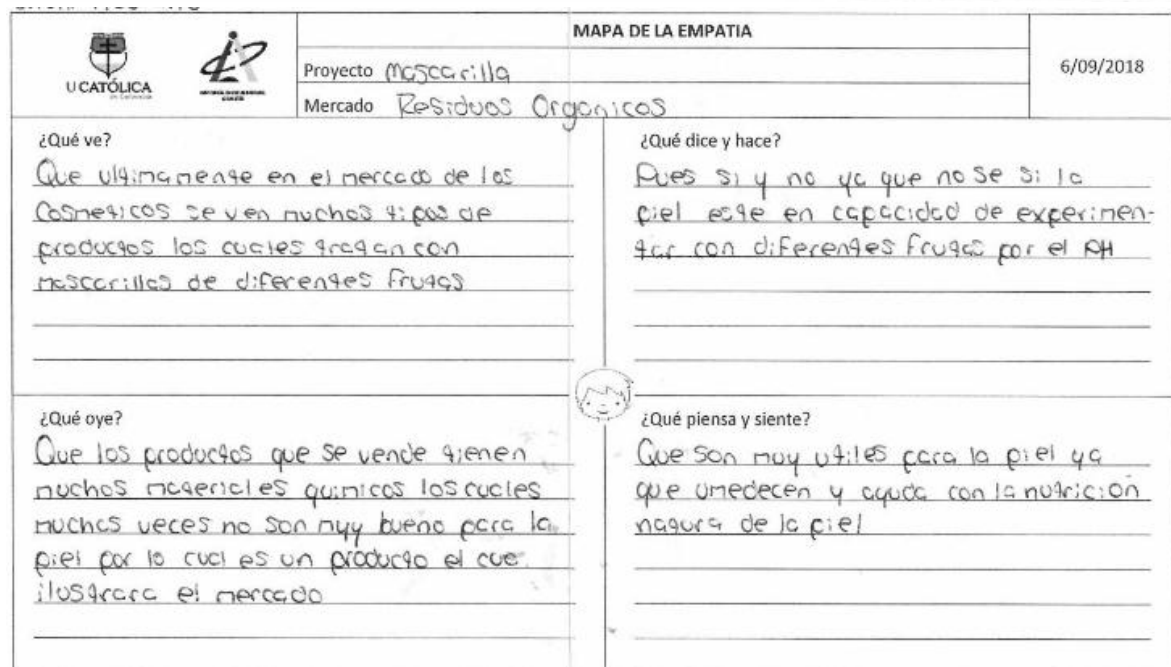 MAPA DE LA EMPATIA
UCATÓLICA
Proyecto Mascarilla
6/09/2018
Mercado Residuos Organicos
¿Qué ve?
Que ultimamente en el mercado de los
Cosmeticos se ven muchos tipos de
productos los cuales tratan con
mascarillas de diferentes frutas
¿Qué dice y hace?
Pues si y no ya que no se si la
piel este en capacidad de experimen-
tar con diferentes frutas por el RH
¿Qué oye?
Que los productos que se vende tienen
muchos materiales quimicos los cuales
muchas veces no son muy bueno para la
piel por lo cual es un producto el cue
ilustrara el mercado
¿Qué piensa y siente?
Que son muy utiles para la piel ya
que umedecen y ayuda con la nutrición
natura de la piel